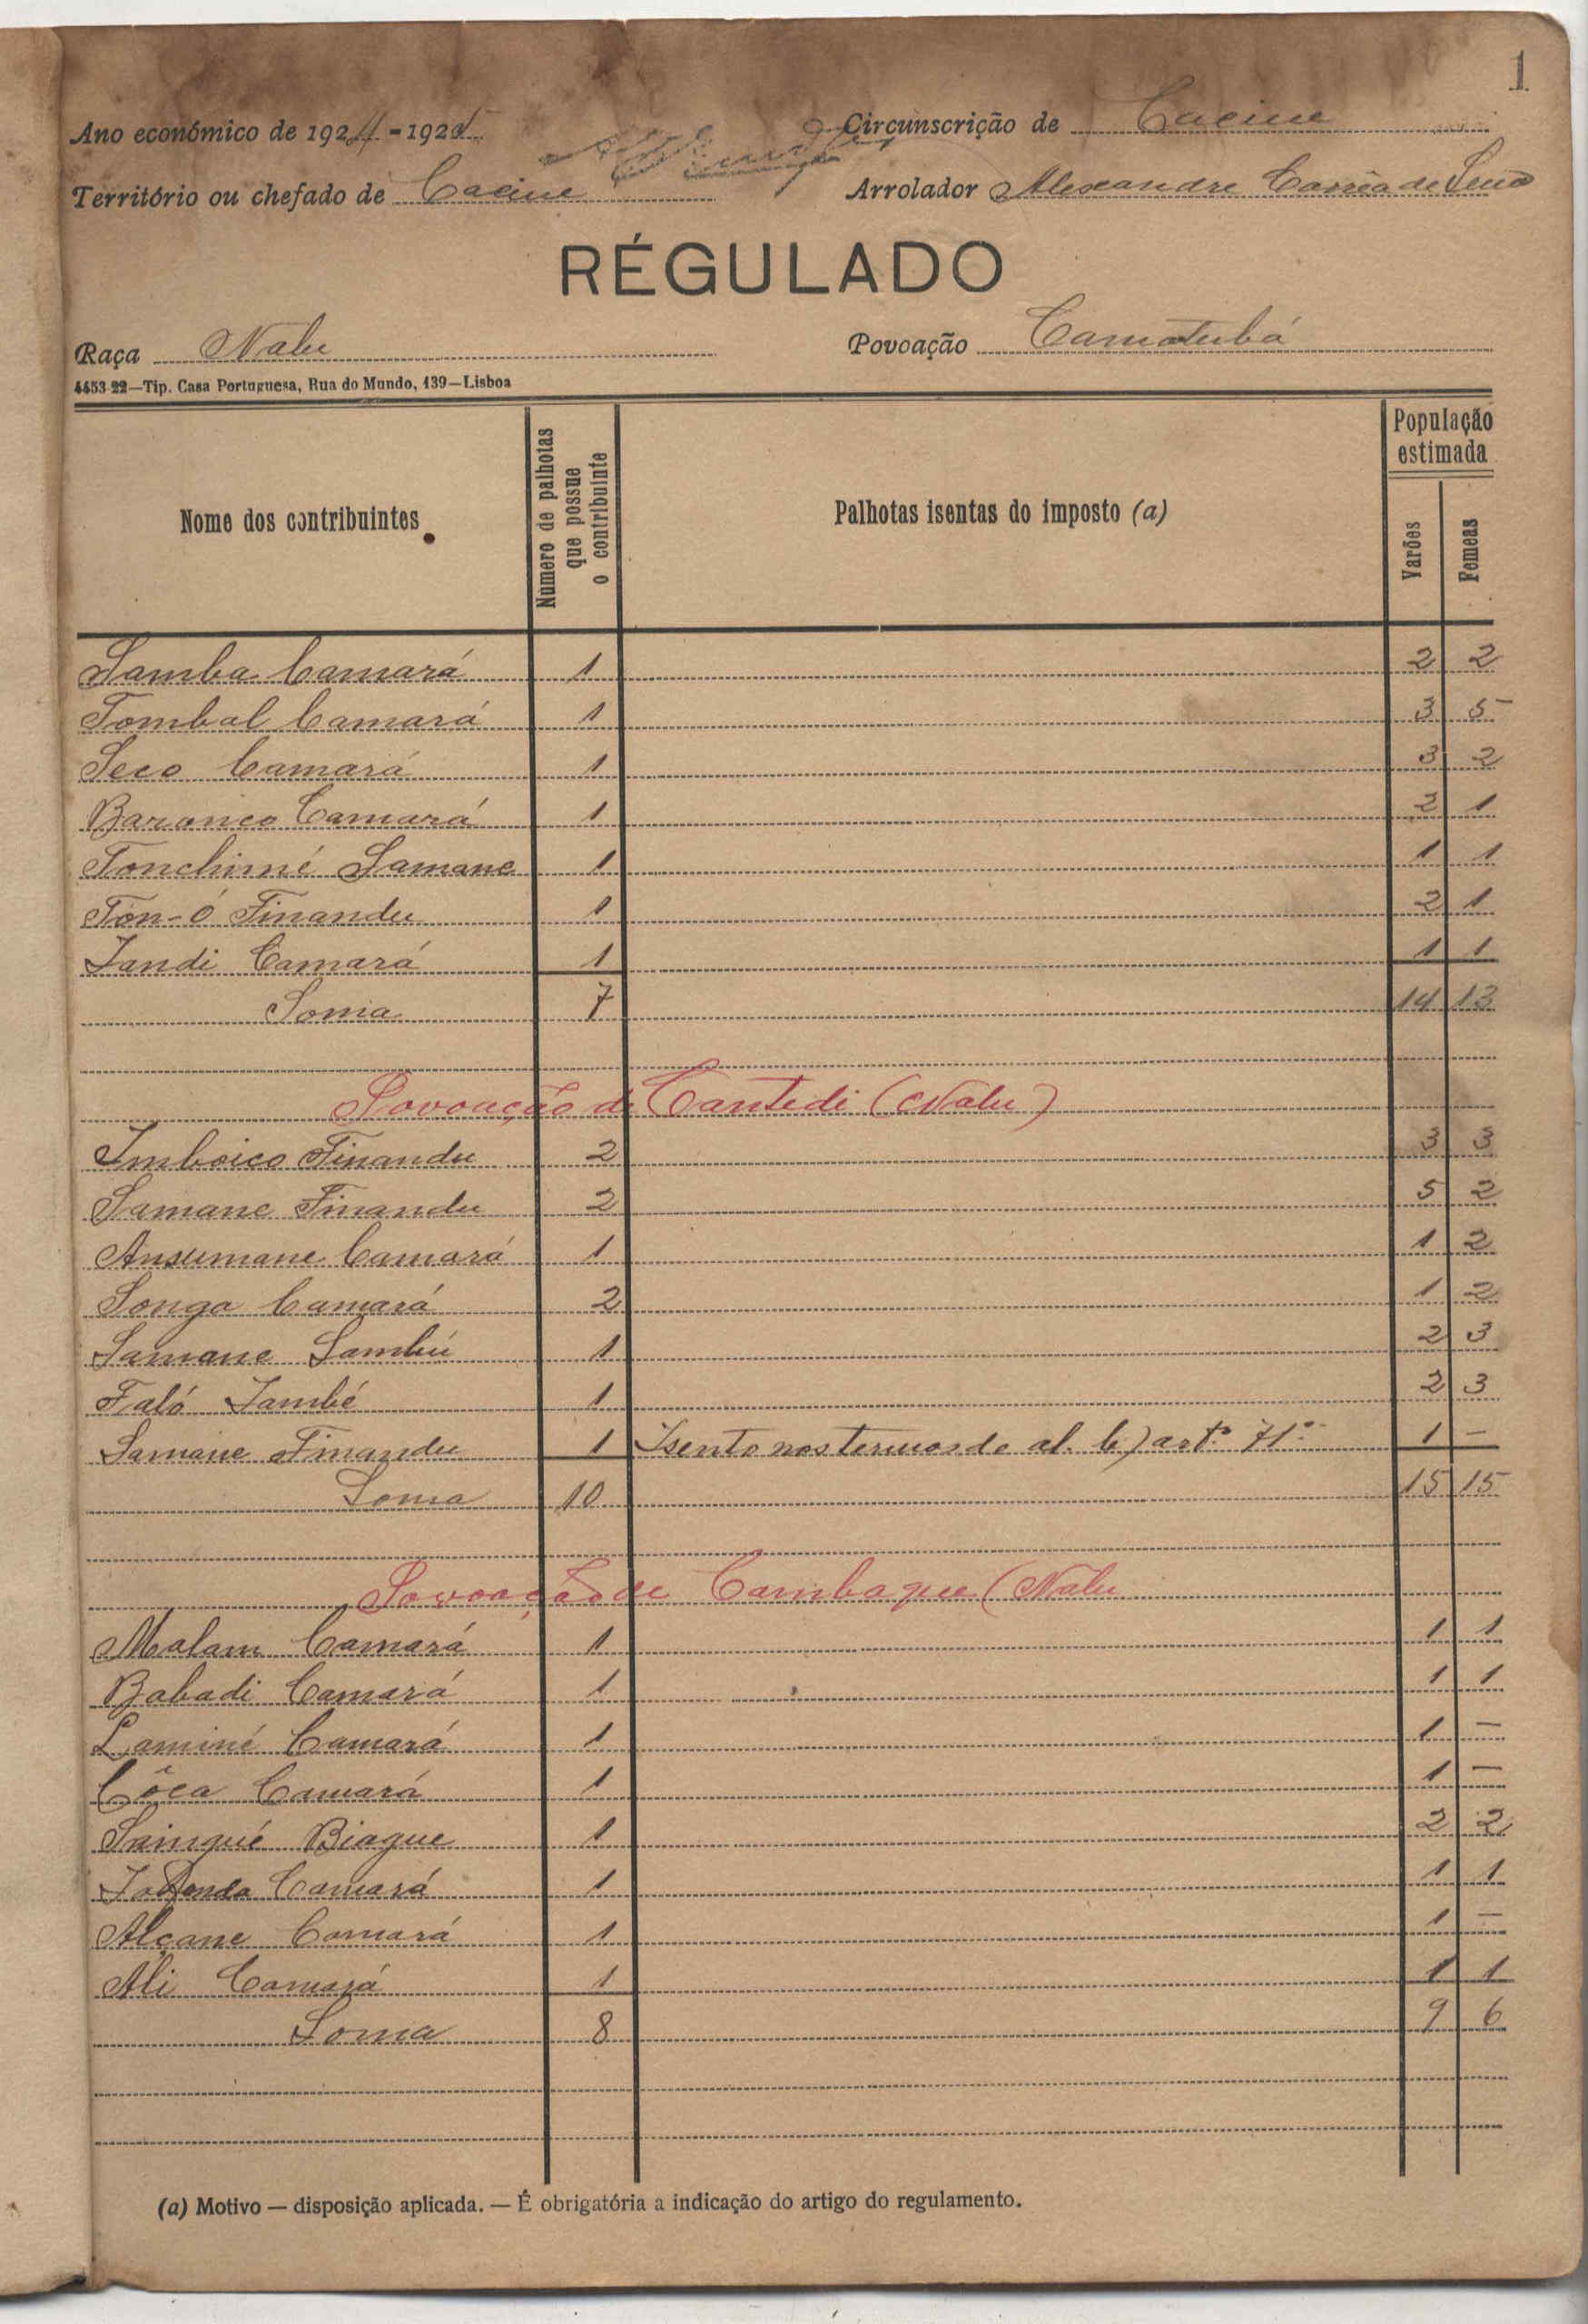 1
Ano económico de 1924-1925 Circunscrição de Cacine
Território ou chefado de Cacine Arrolador Alexandre Corrêa de Sena
RÉGULADO
Raça Nalu Povoação Camatubá
4453-22—Tip. Casa Portuguesa, Rua do Mundo, 139—Lisboa
Nome dos contribuintes Número de palhotas que possue o contribuinte Palhotas isentas do imposto (a) População estimada Varões Femeas
Samba Camará 1 2 2
Tombal Camará 1 3 5
Seco Camará 1 3 2
Baronco Camará 1 2 1
Tonchimé Samane 1 1 1
Ton-ó Finandu 1 2 1
Jandi Camará 1 1 1
Soma 7 14 13
Povoação de Cantedi (Nalu)
Imboico Finandu 2 3 3
Samane Finandu 2 5 2
Ansumane Camará 1 1 2
Songa Camará 2 1 2
Samane Sambú 1 2 3
Faló Jambé 1 2 3
Samane Finandu 1 Isento nos termos do al. b) artº 71º 1 —
Soma 10 15 15
Povoação de Cambaque (Nalu
Malam Camará 1 1 1
Babadi Camará 1 1 1
Laminé Camará 1 1 —
Côca Camará 1 1 —
Saingué Biague 1 2 2
Camará 1 1 1
Alçane Camará 1 1 —
Ali Camará 1 1 1
Soma 8 9 6
(a) Motivo — disposição aplicada. — É obrigatória a indicação do artigo do regulamento.